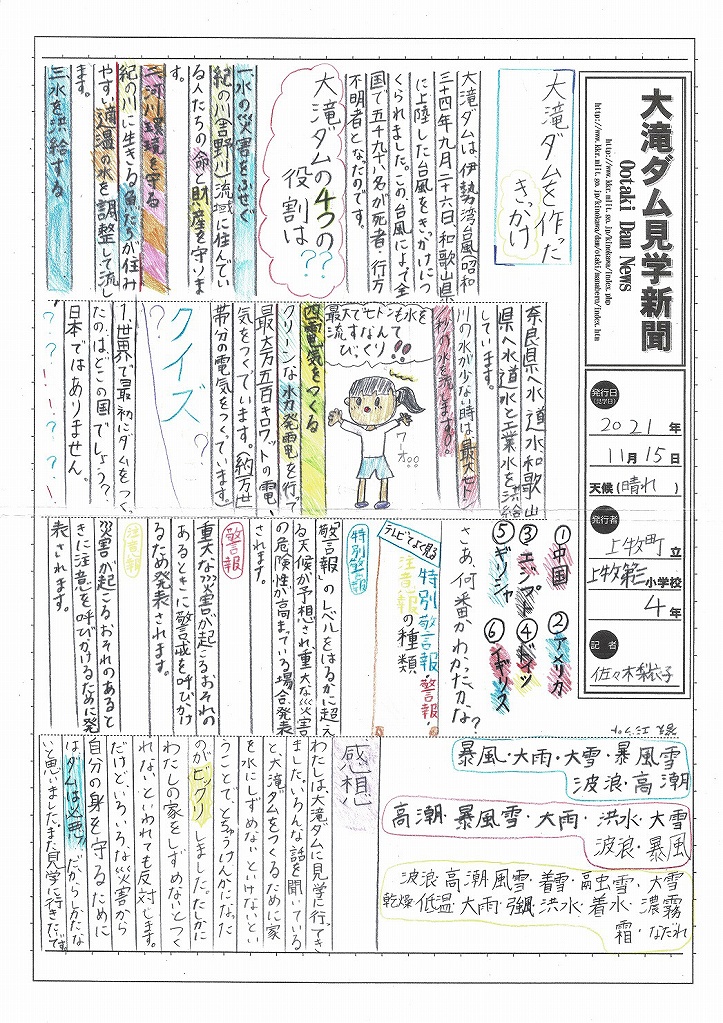 大滝ダム見学新聞
Ootaki Dam News
http://www.kkr.mlit.go.jp/kinokawa/index.php
http://www.kkr.mlit.go.jp/kinokawa/dam/otaki/manabero/index.htm
発行日
(見学日)
2021年
11月15日
天候(晴れ)
発行者
上牧町立
上牧第三小学校
4年
記者
大滝ダムを作った
きっかけ
大滝ダムは伊勢湾台風(昭和
三十四年九月二十六日)和歌山県
に上陸した台風をきっかけにつ
くられました。この台風によて全
国で五千九十八名が死者・行方
不明者となたのです。
大滝ダムの4つの
役割は??
一、水の災害をふせぐ
紀の川(吉野川)流域に住んでい
る人たちの命と財産を守りま
す。
二、河川環境を守る
紀の川に生きる魚たちが住み
やすい適温の水を調整して流し
ます。
三、水を洪給する
奈良県へ水道水和歌山
県へ水道水と工業水を洪給
しています。
川の水が少ない時は最大七トン
/秒の水を流します。
最大で七トンも水を
流すなんて
びっくり!!
ワォ。。
四、電気をつくる
クリーンな水力発電を行って
最大万五百キロワットの電
気をつくています。(約万世
帯分の電気をつくています。
クイズ??
1、世界で最初にダムをつく
たのは、どこの国でしょう?
日本ではありません。
①中国 ②アメリカ
③エジプト ④ドイツ
⑤ギリシャ ⑥イギリス
さあ、何番かわかたかな?
答え エジプト
テレビでよく見る
特別警報・警報・
注意報の種類
特別警報
「警報」のレベルをはるかに超え
る天候が予想され重大な災害
の危険性が高まている場合発表
されます。
警報
重大な災害が起こるおそれの
あるときに警戒を呼びかけ
るため発表されます。
注意報
災害が起こるおそれのあると
きに注意を呼びかけるために発
表されます。
暴風・大雨・大雪・暴風雪
波浪・高潮
高潮・暴風雪・大雨・洪水・大雪
波浪・暴風
波浪・高潮・風雪・着雪・融雪・大雪
乾燥・低温・大雨・強風・洪水・着氷・濃霧
霜・なだれ
感想
わたしは、大滝ダムに見学に行ってき
ました。いろんな話を聞いている
と大滝ダムをつくるために家
を水にしずめないといけないとい
うことで、とちゅうけんかになた
のがビックリしました。たしかに
わたしの家をしずめないとつく
れないといわれても反対します。
だけどいろいろな災害から
自分の身を守るために
はダムは必要。だからしかたな
いと思いました。また見学に行きたいです